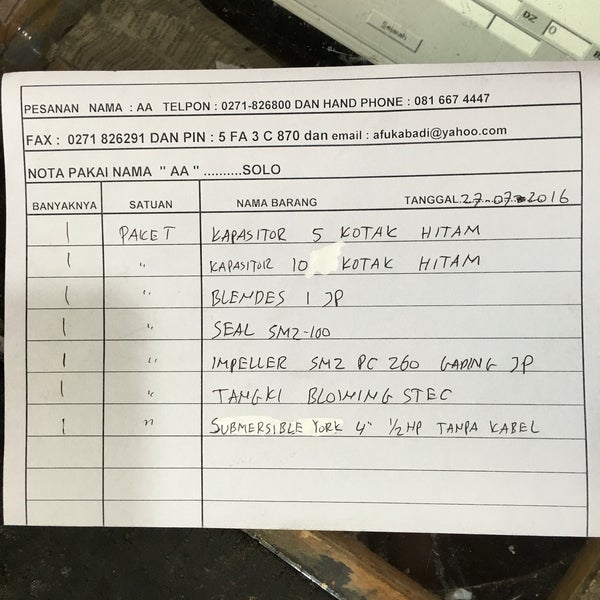 PESANAN NAMA : AA TELPON : 0271-826800 DAN HAND PHONE : 081 667 4447
FAX : 0271 826291 DAN PIN : 5 FA 3 C 870 dan email : afukabadi@yahoo.com
NOTA PAKAI NAMA " AA " ..........SOLO
BANYAKNYA SATUAN NAMA BARANG TANGGAL.27-07-2016
1 PAKET KAPASITOR 5 KOTAK HITAM
1 " KAPASITOR 10 KOTAK HITAM
1 " BLENDES 1 JP
1 " SEAL SMZ-100
1 " IMPELLER SMZ PC 260 GADING JP
1 " TANGKI BLOWING STEC
1 " SUBMERSIBLE YORK 4" 1/2 HP TANPA KABEL
Sejarah
DZ
0